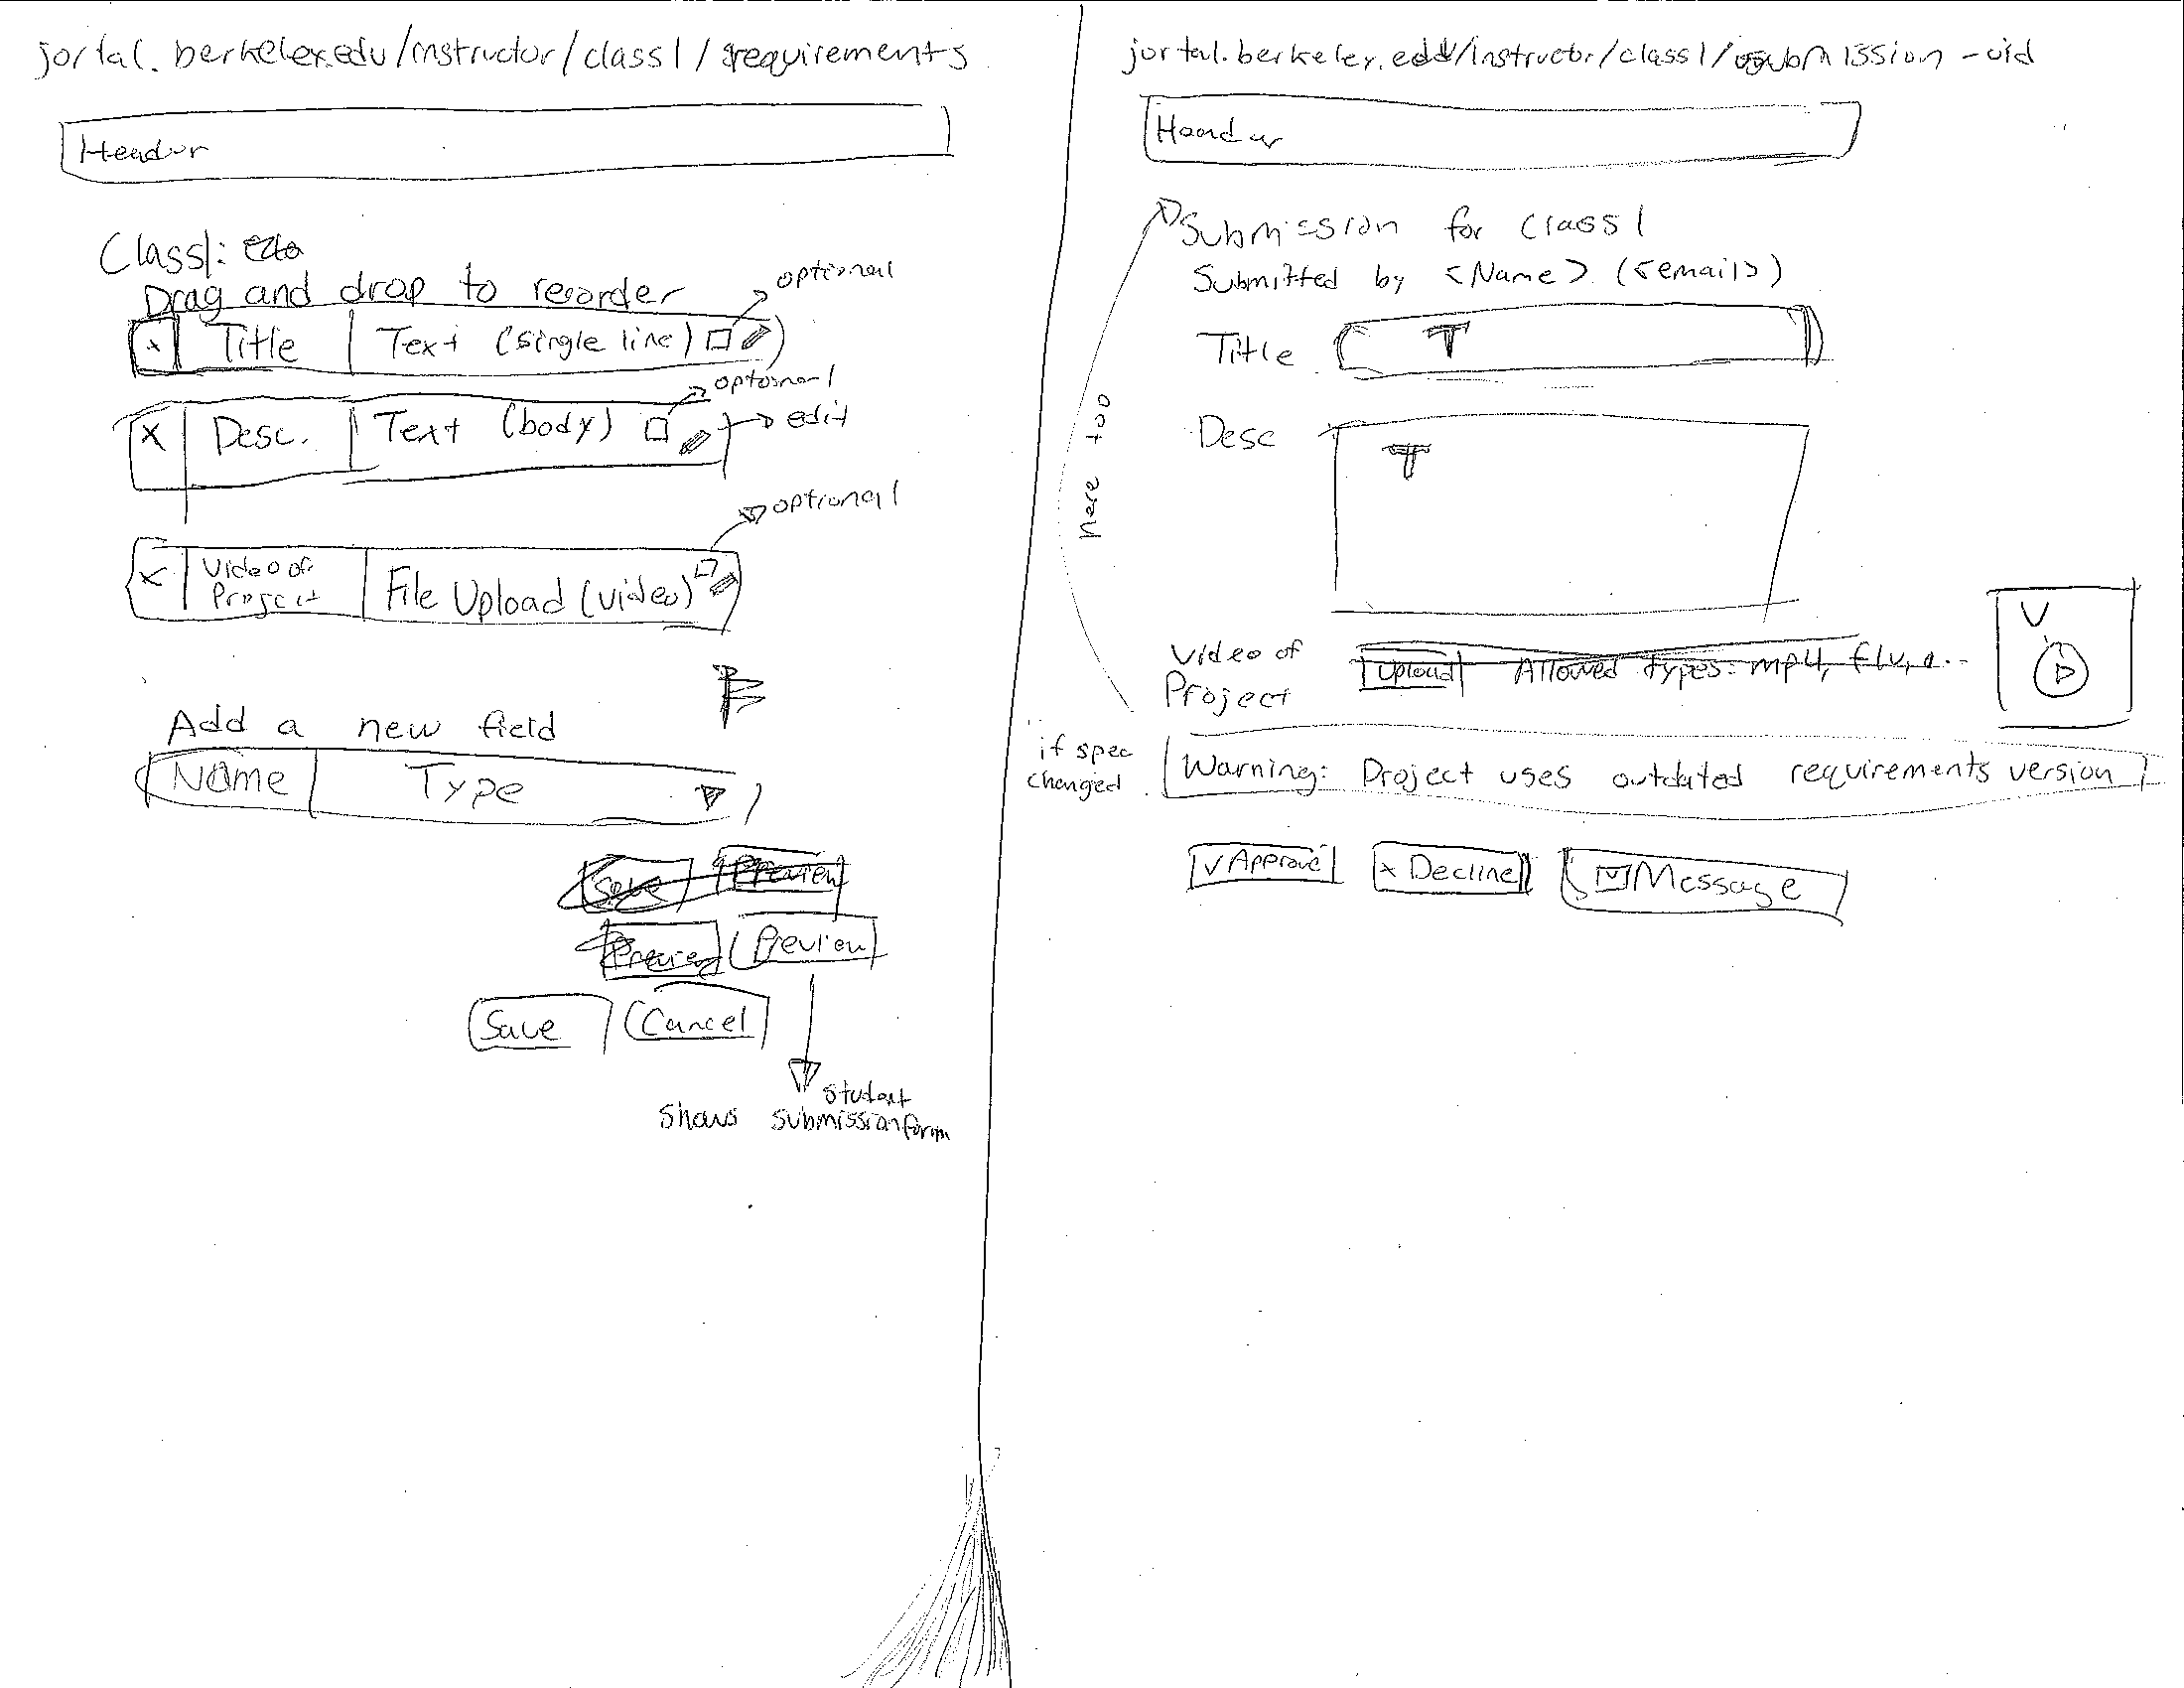 jortal.berkeley.edu/instructor/class1/requirements
Header
Class1:
Drag and drop to reorder
optional
x Title Text (single line)
optional
x Desc. Text (body)
edit
optional
x Video of Project File Upload (video)
Add a new field
Name Type
Save Preview
Preview Preview
Save Cancel
shows student submission form
jortal.berkeley.edu/instructor/class1/submission-uid
Header
Submission for Class1
Submitted by <Name> (<email>)
Title T
here too
Desc T
Video of Project
Upload Allowed types: mp4, flv, ...
V
if spec changed
Warning: Project uses outdated requirements version
✓ Approve x Decline Message